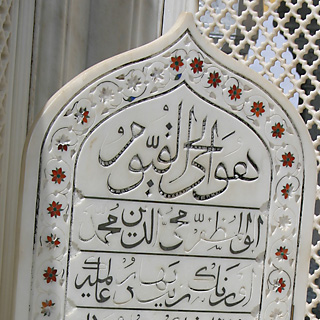 هو الحی القیوم
ابو المظفر محی الدین محمد
اورنگ زیب بهادر عالمگیر